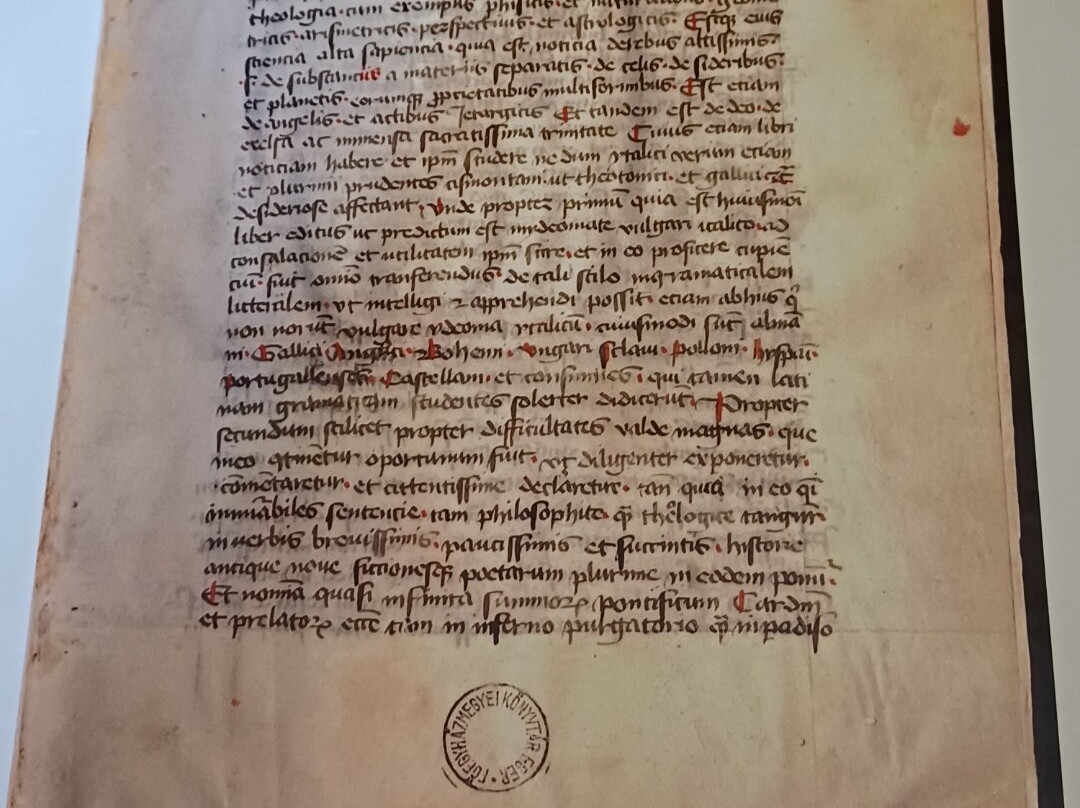 theologia cum exemplis phisicis et naturalibus geome
tricis · arismetricis · perspectivis · et astrologicis · Estque eius
sciencia alta sapiencia · quia est noticia de rebus altissimis
.s. de substanciis a materiis separatis · de celis · de sideribus ·
et planetis · eorumque proprietatibus multiformibus · Est etiam
de angelis · et actibus Et tandem est de deo · de
exelsa ac immensa sacratissima trinitate Cuius etiam libri
noticiam habere et ipm studere ne dum ytalici verum etiam
et plurimi prudentes ut theotonici · et gallici
desideriose affectant · Unde propter primum quia est huiusmoi
liber editus ut predictum est in ydeomate vulgari italico · ad
consolacionem et utilitatem ipm scire · et in eo proficere cupien
cium · fuit omnino tranferendus · de tali stilo in gramaticalem
litteralem · ut intelligi et apprehendi possit · etiam ab hiis qi
non norunt vulgare ydeoma ytalicum · cuiusmodi sut alma
ni · Gallici Anglici · Bohemi · Ungari sclavi · polloni · hyspani ·
portugallenses · Castellani · et consimiles · qui tamen lati
nam gramaticam studentes solerter didicerut · Propter
secundum scilicet propter difficultates valde magnas · que
in eo otinetur oportunum fuit · ut diligenter exponeretur ·
comentaretur · et attentissime declaretur · tan quia in eo qi
inumabiles sentencie · tam philosophice · qm theologice tangutur
in verbis brevissimis · paucissimis et succintis · historie
antique nove ficcionesque poetarum plurime in eodem ponutur ·
Et nomina quasi infinita summorum pontificum Cardin
et prelatorum eccie tum in inferno purgatorio qm in padiso
FŐEGYHÁZMEGYEI KÖNYVTÁR EGER